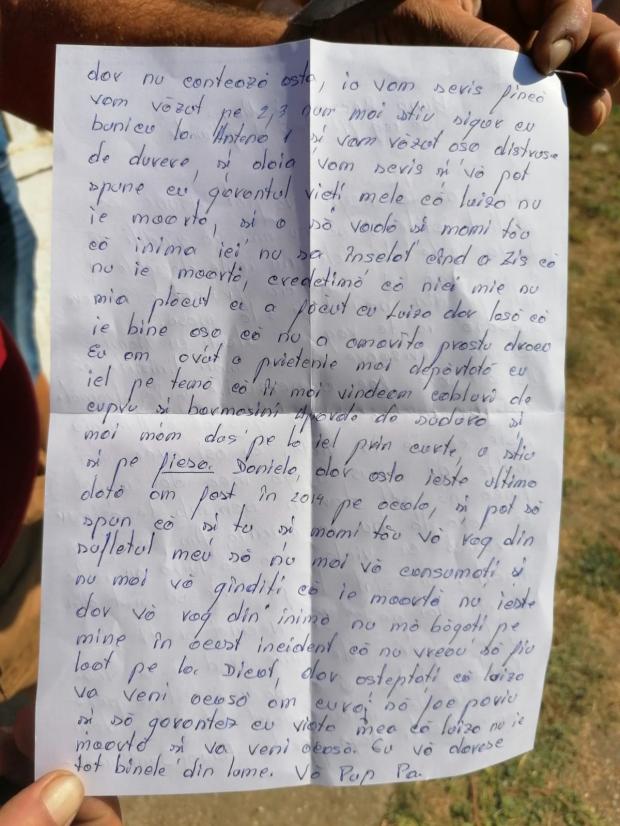 dor nu conteazó asta, io vom scris fincó
vom vózut pe 2,3 num moi știu sigur cu
bunicu la Antena 1 și vom vózut oso distruse
de durere, și doia vom scris și vó pot
spune cu gorontul vieți mele có luizo nu
ie moorto, și o só vadó și momi tóu
có inima iei nu sa înselot cînd o Zis có
nu ie moortó, credețimó có nici mie nu
mia plócut ce a fócut cu Luizo dor losó có
ie bine oso có nu o omorîto prostu droeu
Eu om ovut o prietenie moi depórtotó cu
iel pe temó có îi moi vindeom cabluri de
cupru și bormosini Aporote de sudură și
moi mom dus pe la iel prin curte, o știu
și pe fieso. Daniela, dor osto ieste ultimo
dotó om fost în 2014 pe ocolo, și pot só
spun có și tu și momi tóu vó rog din
sufletul meu só nu moi vó consumoti și
nu moi vó gînditi có ie moortó nu ieste
dor vó rog din inimo nu mó bógoti pe
mine în ocest incident có nu vreou só fiu
luot pe la Dicot, dor osteptoti có luizo
va veni ocosó om curoj só foc poriu
și só gorontez cu vioto meo có luizo nu ie
moortó și va veni ocosó. Eu vó doresc
tot binele din lume. Vó Pup Pa.